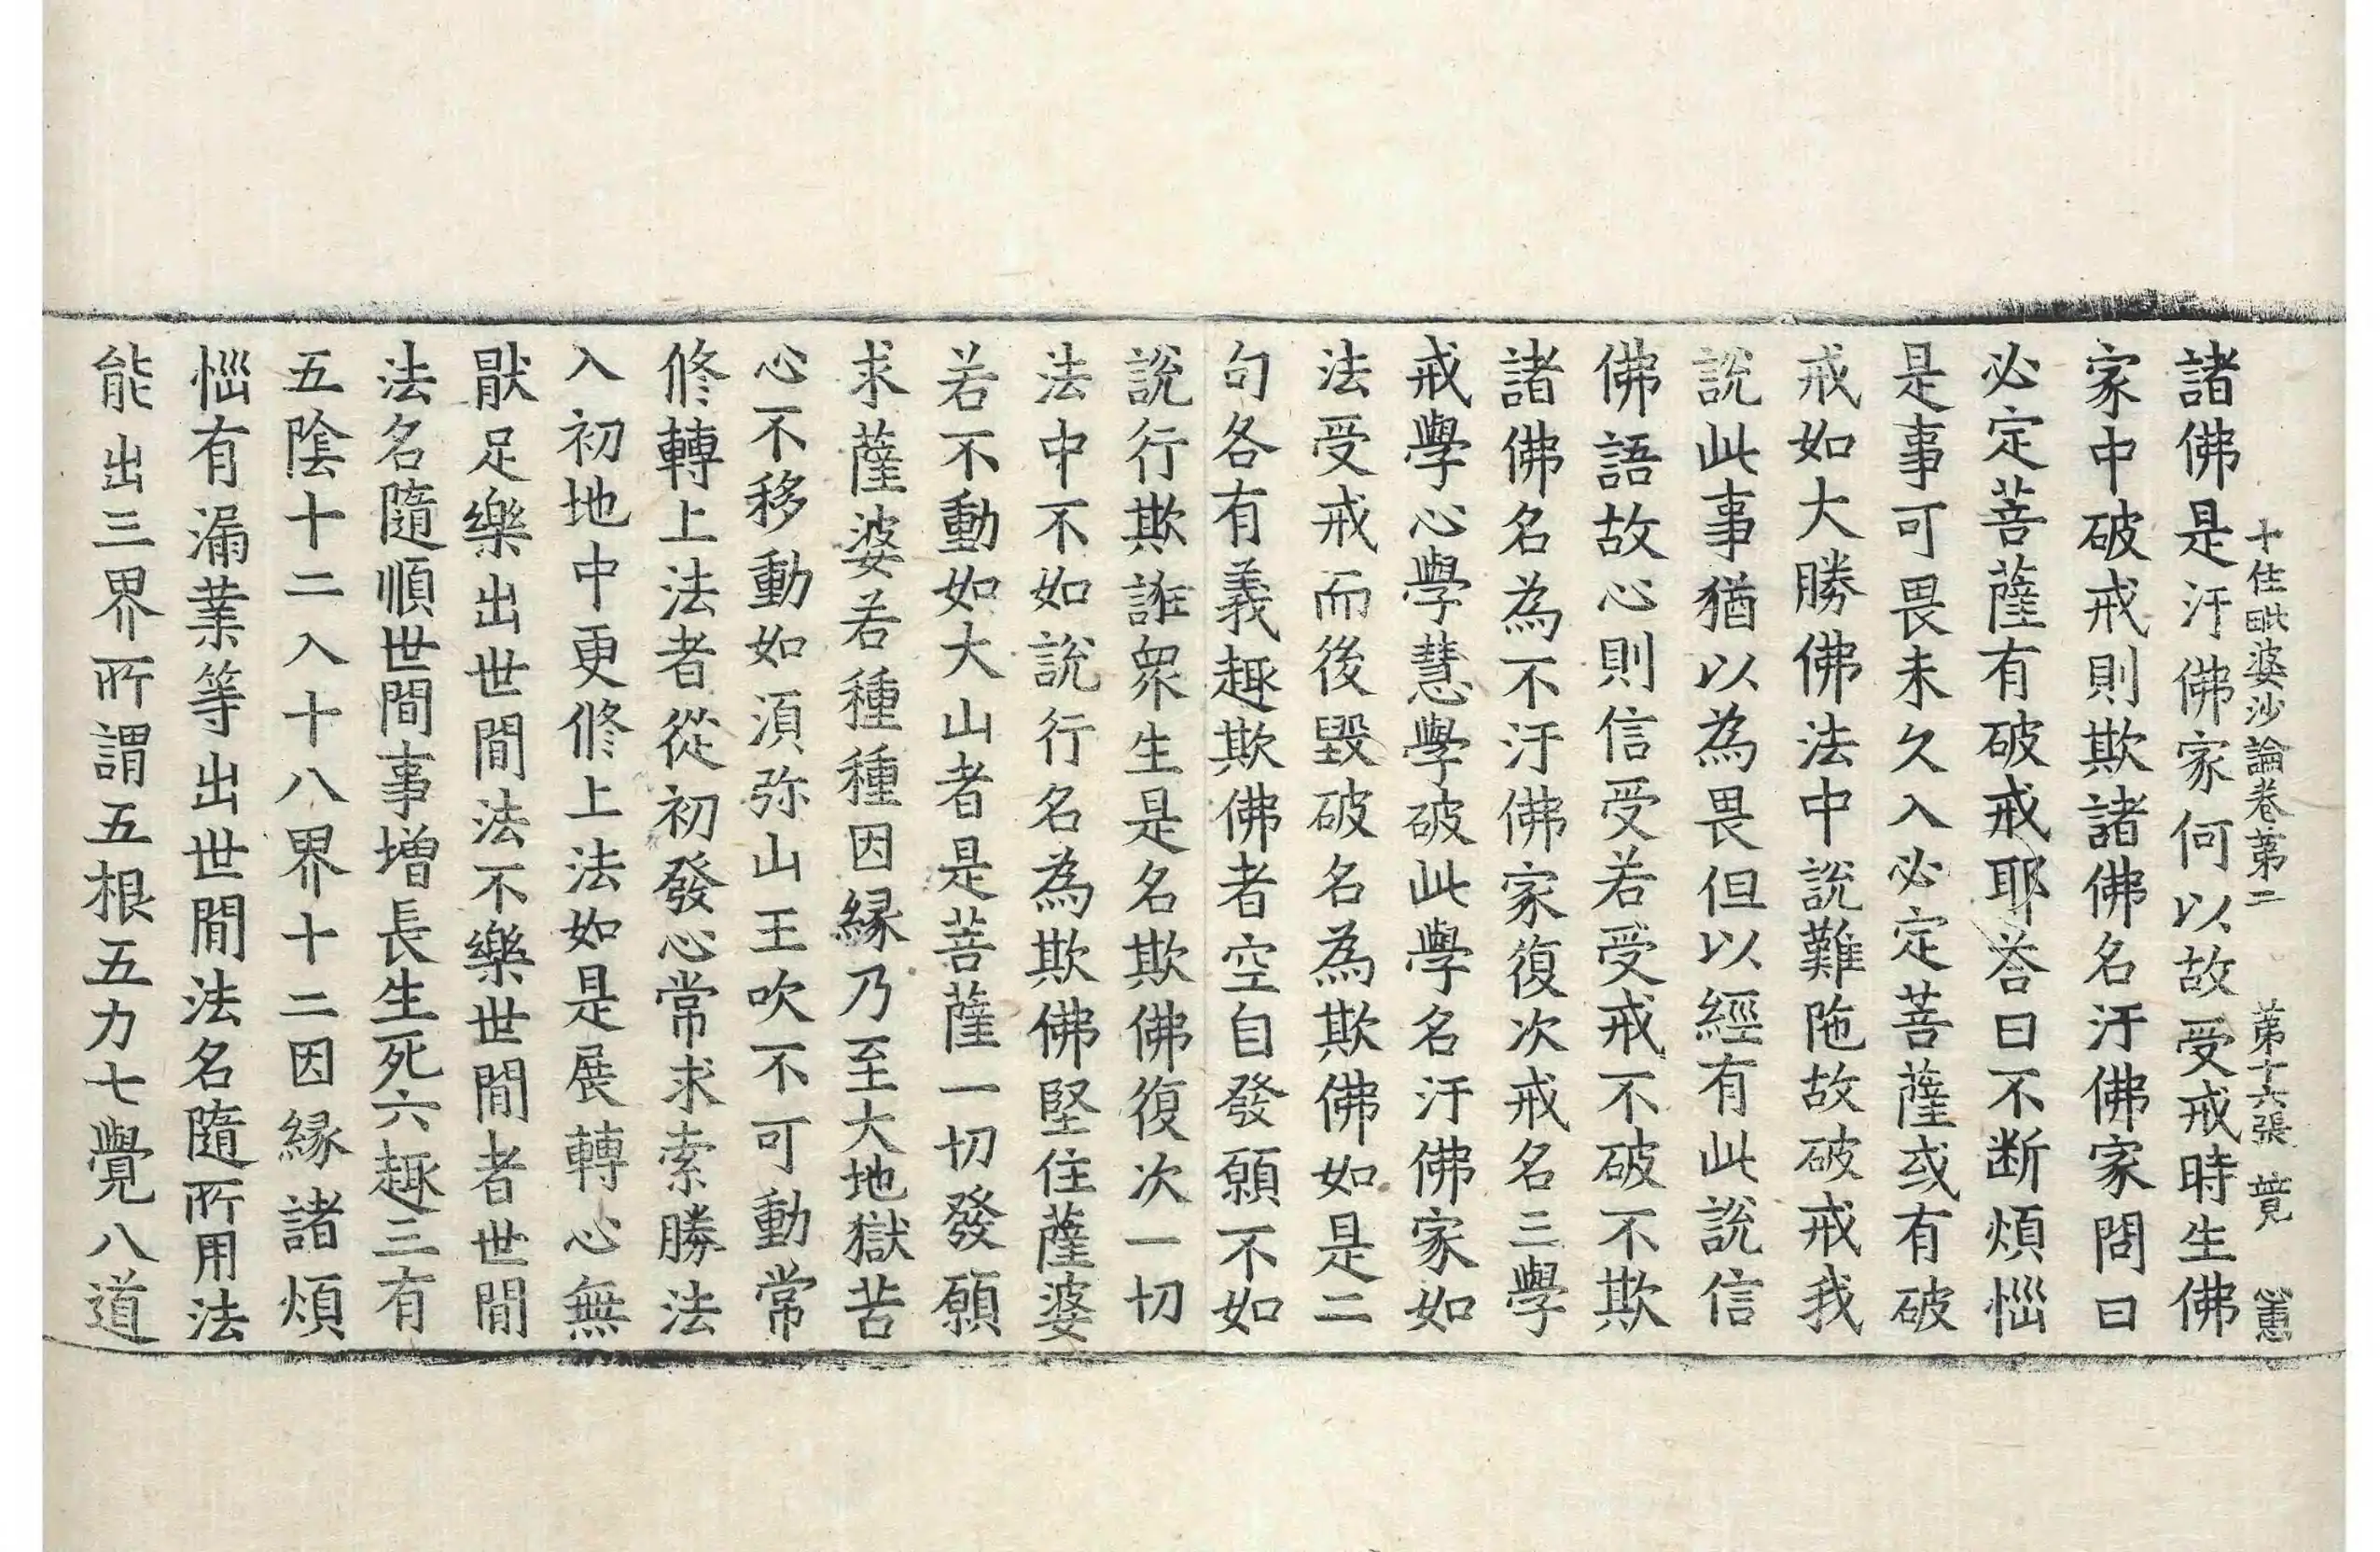 十住毗婆沙論卷第二　第十六張　竟　蕙
諸佛是汙佛家何以故受戒時生佛
家中破戒則欺諸佛名汙佛家問曰
必定菩薩有破戒耶荅曰不断煩惱
是事可畏未久入必定菩薩或有破
戒如大勝佛法中說難陁故破戒我
說此事猶以為畏但以經有此說信
佛語故心則信受若受戒不破不欺
諸佛名為不汙佛家復次戒名三學
戒學心學慧學破此學名汙佛家如
法受戒而後毀破名為欺佛如是二
句各有義趣欺佛者空自發願不如
說行欺誑衆生是名欺佛復次一切
法中不如說行名為欺佛堅住薩婆
若不動如大山者是菩薩一切發願
求薩婆若種種因緣乃至大地獄苦
心不移動如湏弥山王吹不可動常
修轉上法者從初發心常求索勝法
入初地中更修上法如是展轉心無
猒足樂出世間法不樂世間者世間
法名隨順世間事增長生死六趣三有
五陰十二入十八界十二因緣諸煩
惱有漏業等出世間法名隨所用法
能出三界所謂五根五力七覺八道